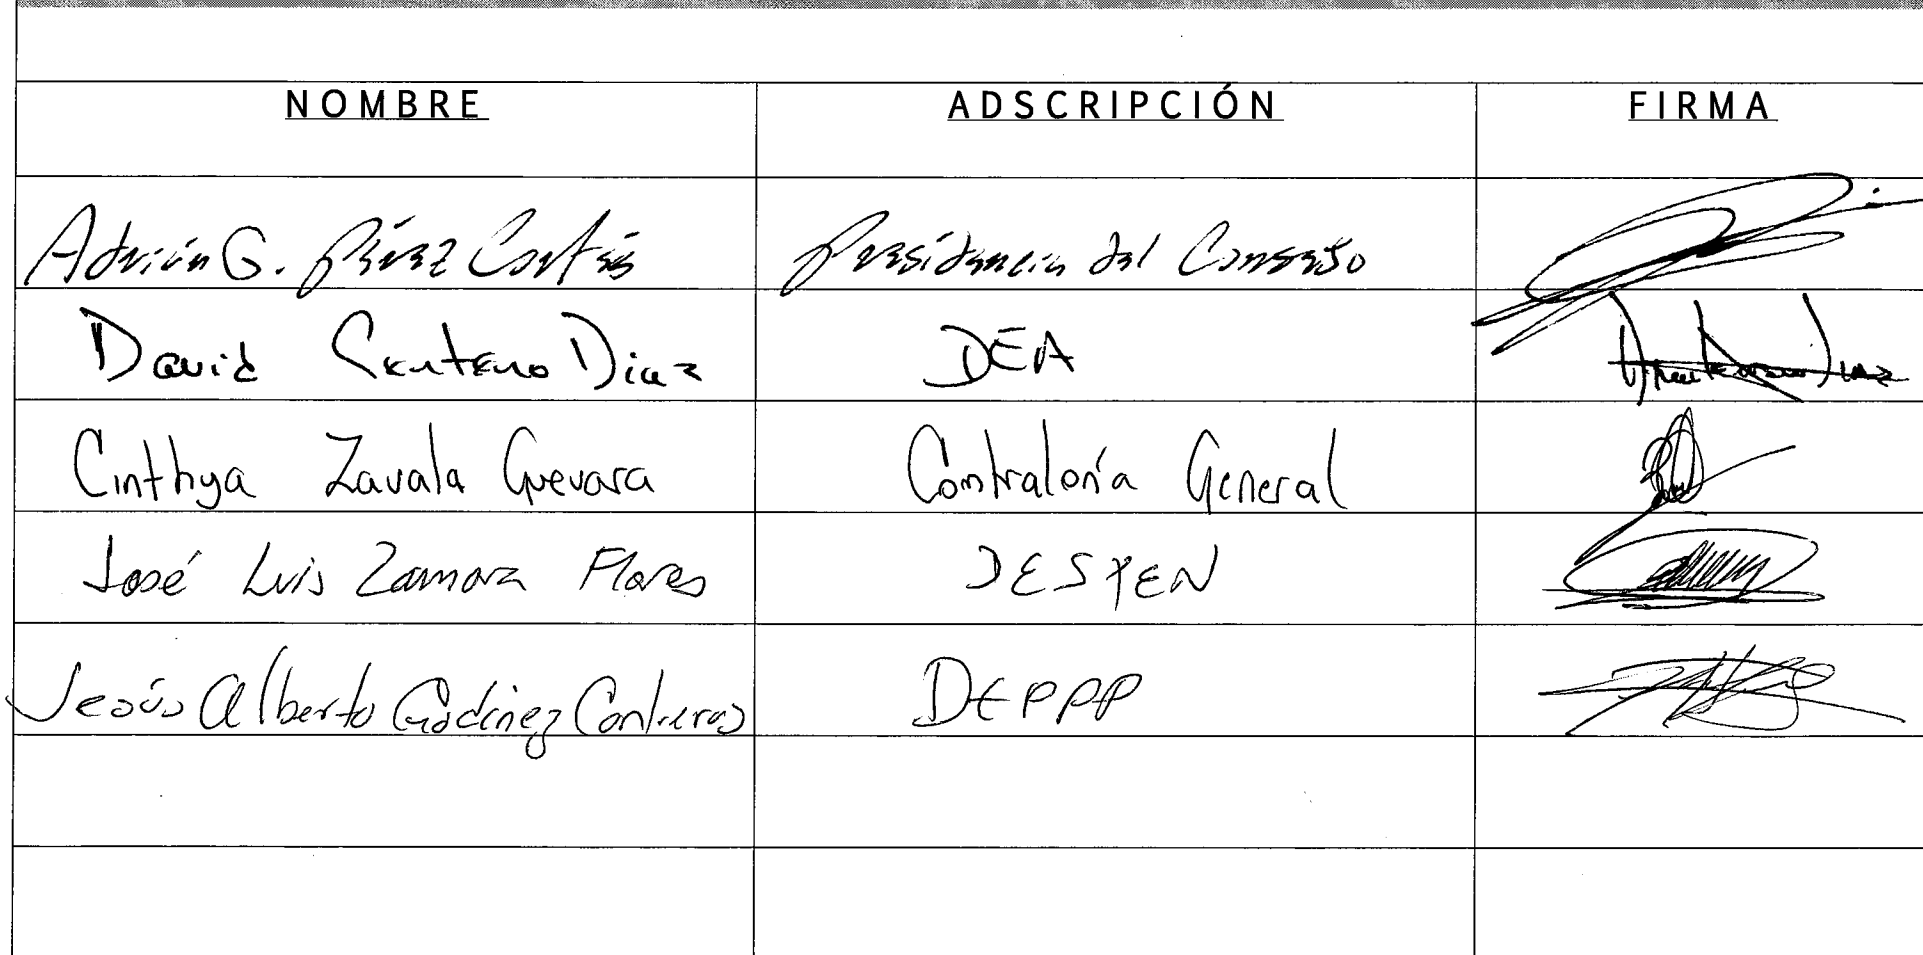 NOMBRE ADSCRIPCIÓN FIRMA
Adrián G. Pérez Cortés Presidencia del Consejo
David Centeno Diaz DEA
Cinthya Zavala Guevara Contraloría General
José Luis Zamora Flores DESPEN
Jesús Alberto Godinez Contreras DEPPP